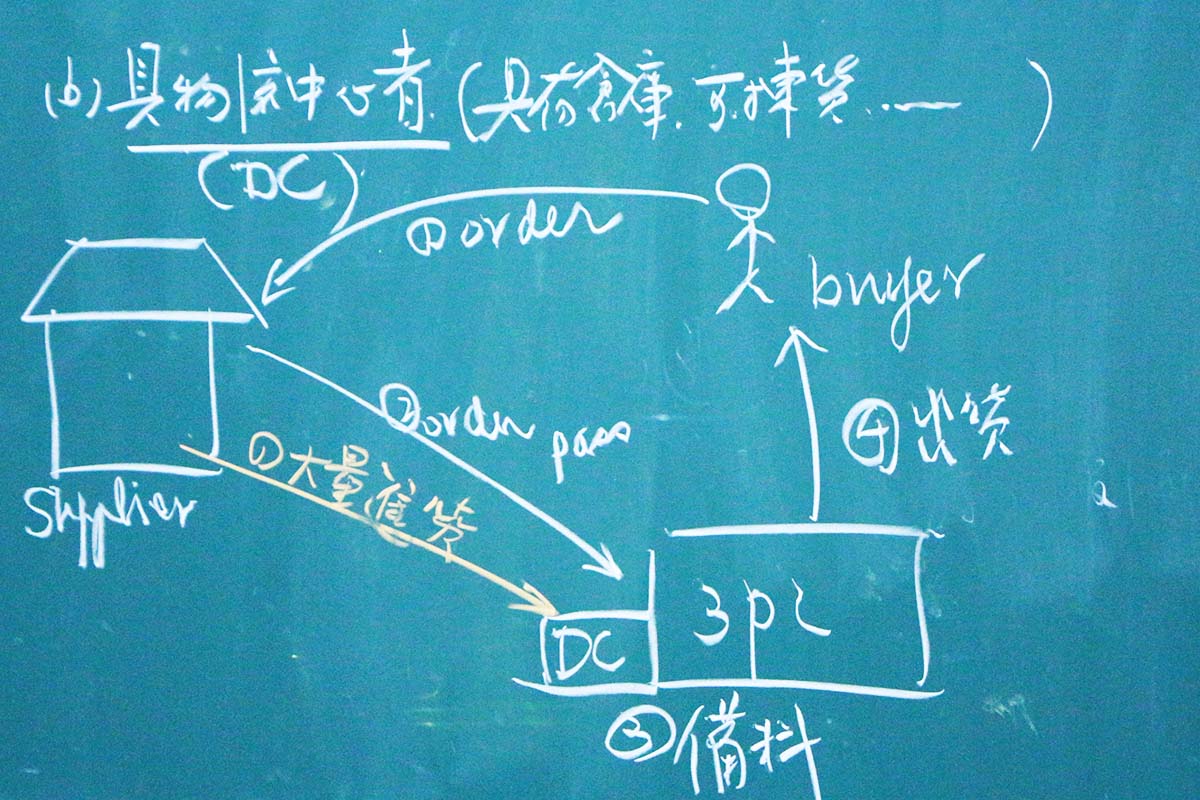 (b)具物流中心者(具有倉庫.可揀貨……)
(DC)
①order
buyer
②order pass
④出貨
①大量進貨
Supplier
3PL
DC
③備料